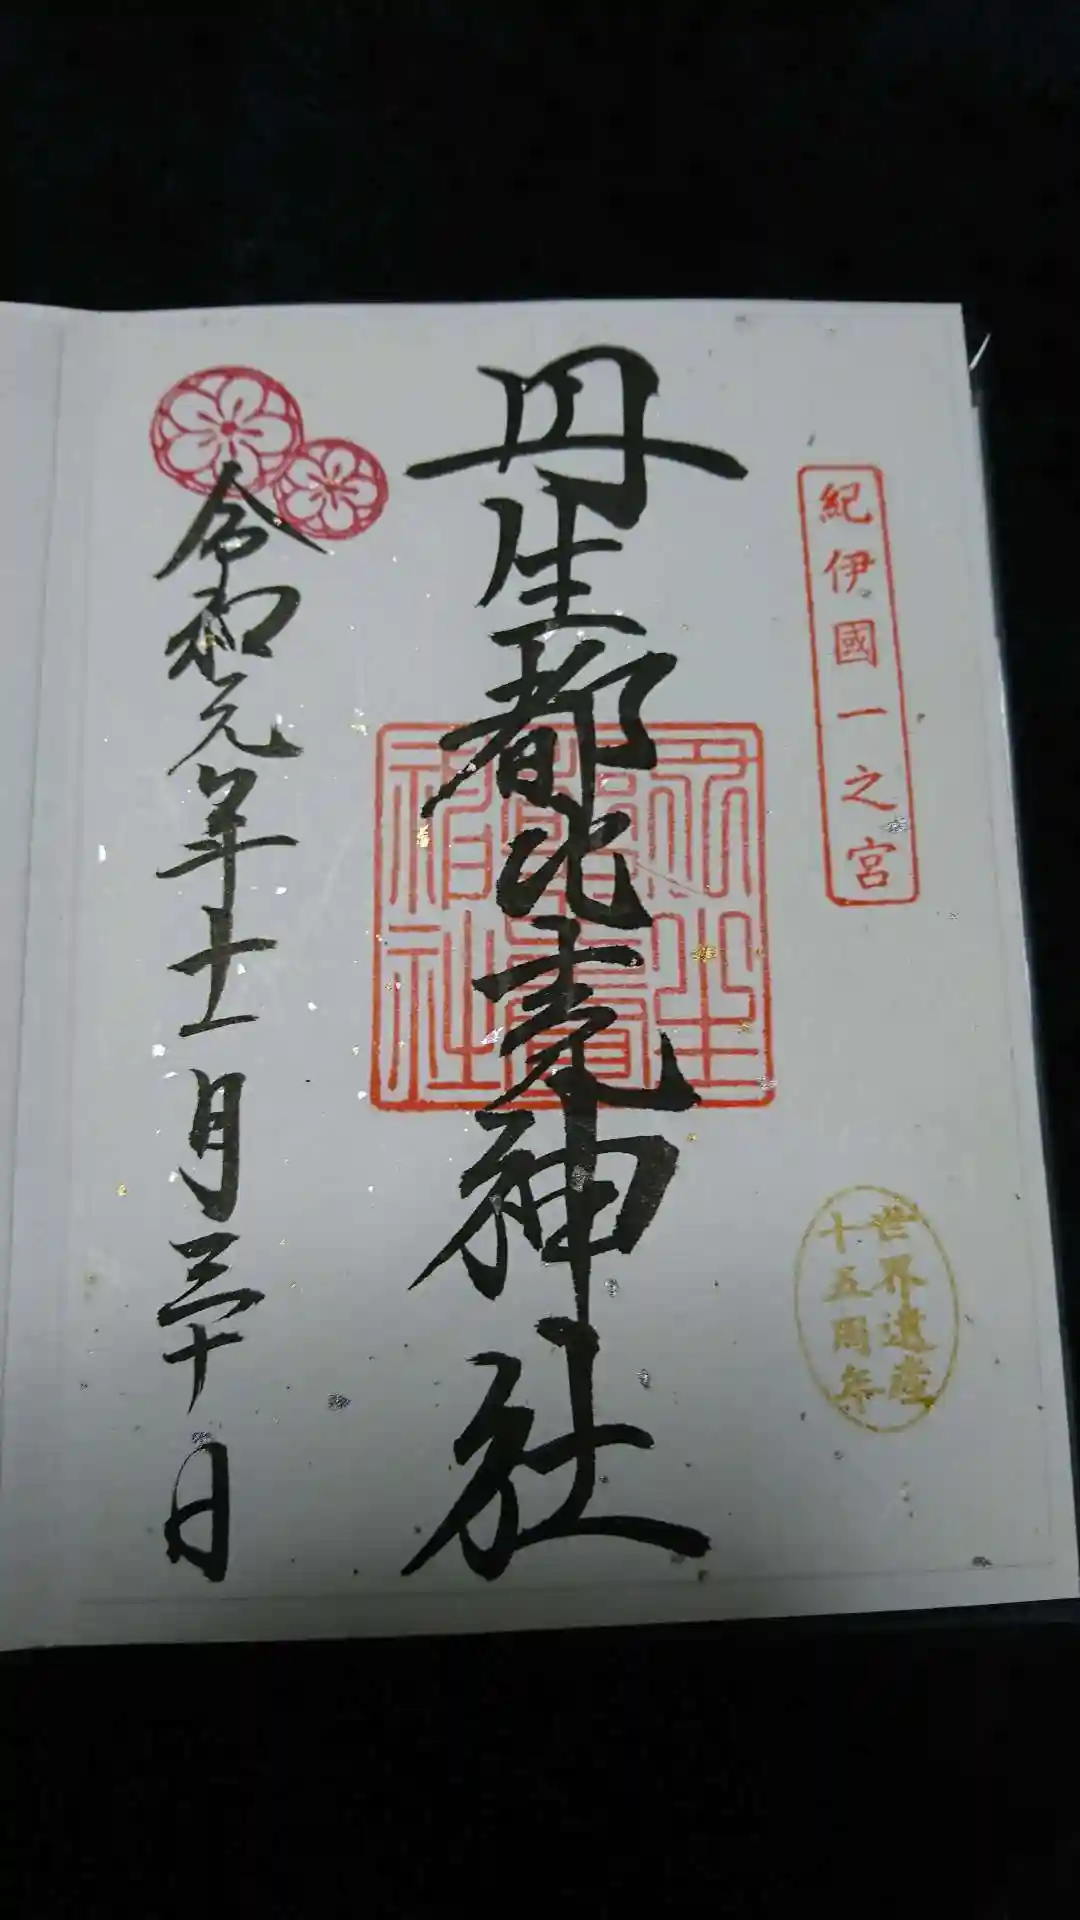 紀伊國一之宮
世界遺産
十五周年
丹生都比売神社
令和元年十一月三十日